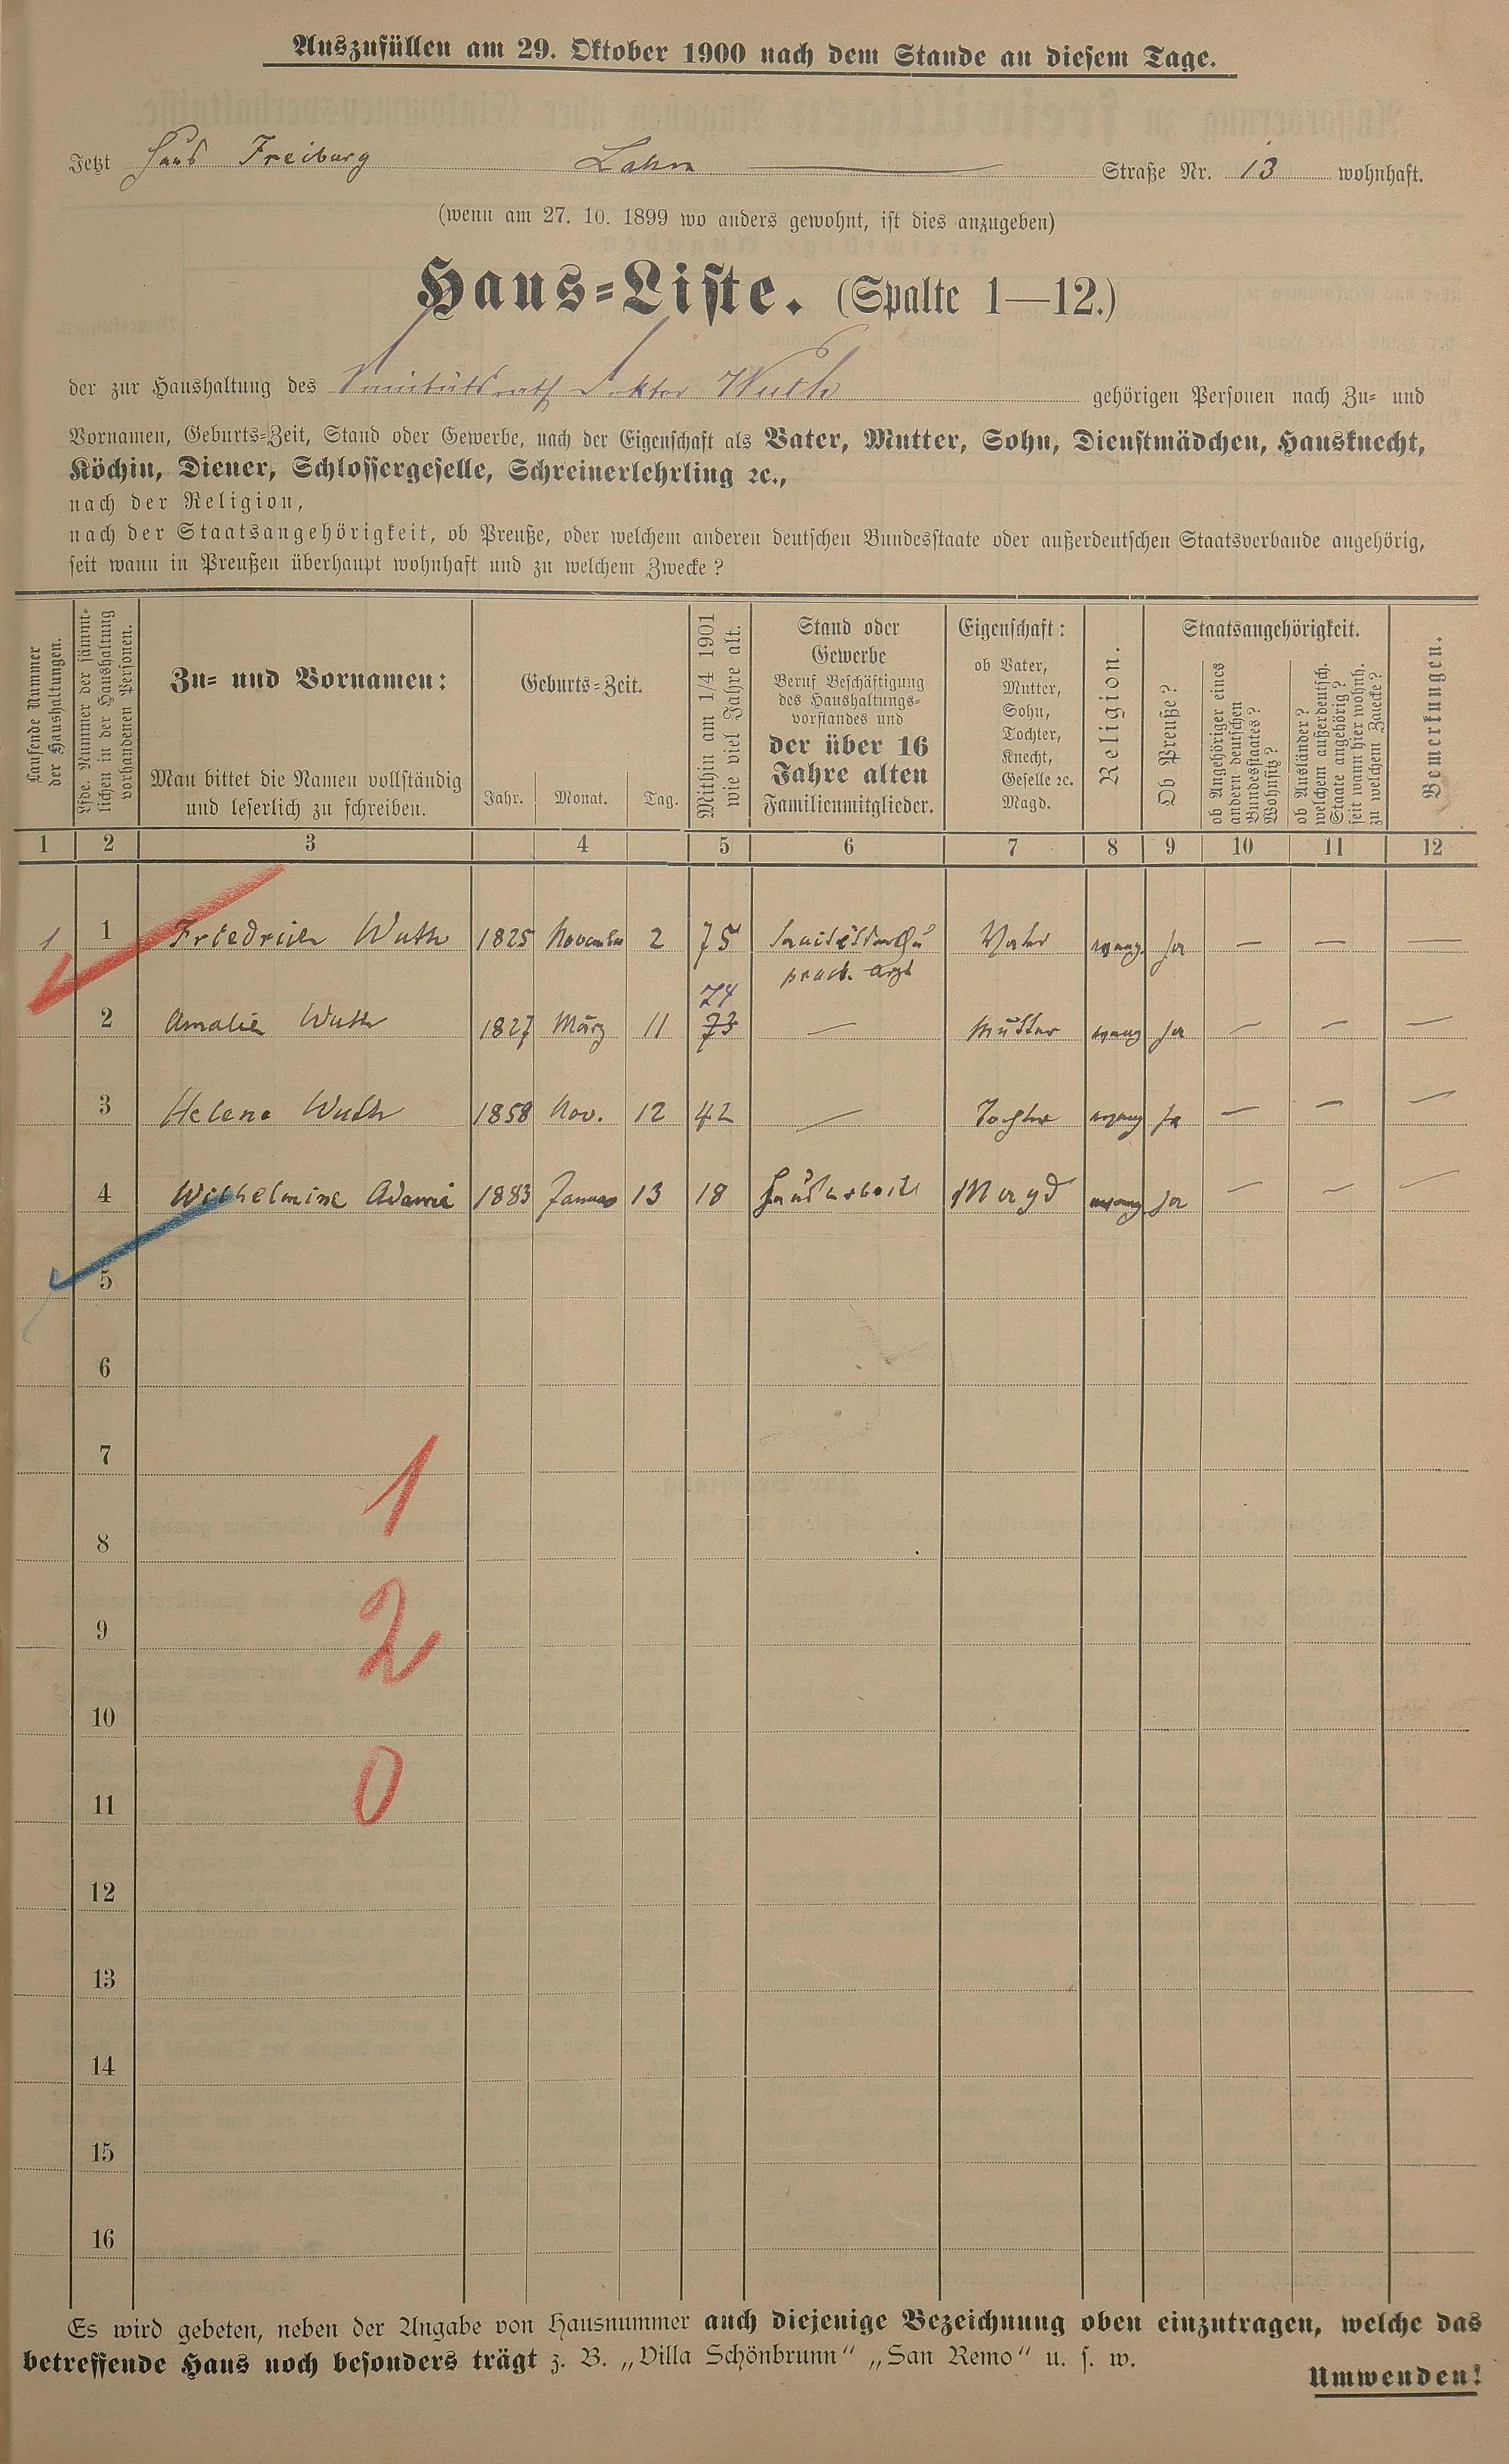 Auszufüllen am 29. Oktober 1900 nach dem Stande an diesem Tage.
Jetzt Haus Freiburg Lahn Straße Nr. 13 wohnhaft.
(wenn am 27. 10. 1899 wo anders gewohnt, ist dies anzugeben)
Haus-Liste. (Spalte 1—12.)
der zur Haushaltung des Sanitätsrath Doktor Wuth gehörigen Personen nach Zu- und
Vornamen, Geburts-Zeit, Stand oder Gewerbe, nach der Eigenschaft als Vater, Mutter, Sohn, Dienstmädchen, Hausknecht,
Köchin, Diener, Schlossergeselle, Schreinerlehrling ꝛc.,
nach der Religion,
nach der Staatsangehörigkeit, ob Preuße, oder welchem anderen deutschen Bundesstaate oder außerdeutschen Staatsverbande angehörig,
seit wann in Preußen überhaupt wohnhaft und zu welchem Zwecke?
Laufende Nummer
der Haushaltungen.
Lfde. Nummer der sämmt-
lichen in der Haushaltung
vorhandenen Personen.
Zu- und Vornamen:
Man bittet die Namen vollständig
und leserlich zu schreiben.
Geburts-Zeit.
Jahr. Monat. Tag.
Mithin am 1/4 1901
wie viel Jahre alt.
Stand oder
Gewerbe
Beruf Beschäftigung
des Haushaltungs-
vorstandes und
der über 16
Jahre alten
Familienmitglieder.
Eigenschaft:
ob Vater,
Mutter,
Sohn,
Tochter,
Knecht,
Geselle ꝛc.
Magd.
Religion.
Staatsangehörigkeit.
Ob Preuße?
ob Angehöriger eines
andern deutschen
Bundesstaates?
Wohnsitz?
ob Ausländer?
welchem außerdeutsch.
Staate angehörig?
seit wann hier wohnh.
zu welchem Zwecke?
Bemerkungen.
1 2 3 4 5 6 7 8 9 10 11 12
1 1 Friedrich Wuth 1825 November 2 75 Vater evang. Ja — — —
pract. Arzt
74
2 Amalie Wuth 1827 März 11 73 — Mutter evang Ja — — —
3 Helene Wuth 1858 Nov. 12 42 — Tochter evang Ja — — —
4 Wilhelmine Adami 1883 Januar 13 18 Hausarbeit Magd evang Ja — — —
5
6
7
1
8
9
2
10
11
0
12
13
14
15
16
Es wird gebeten, neben der Angabe von Hausnummer auch diejenige Bezeichnung oben einzutragen, welche das
betreffende Haus noch besonders trägt z. B. „Villa Schönbrunn“ „San Remo“ u. s. w.
Umwenden!